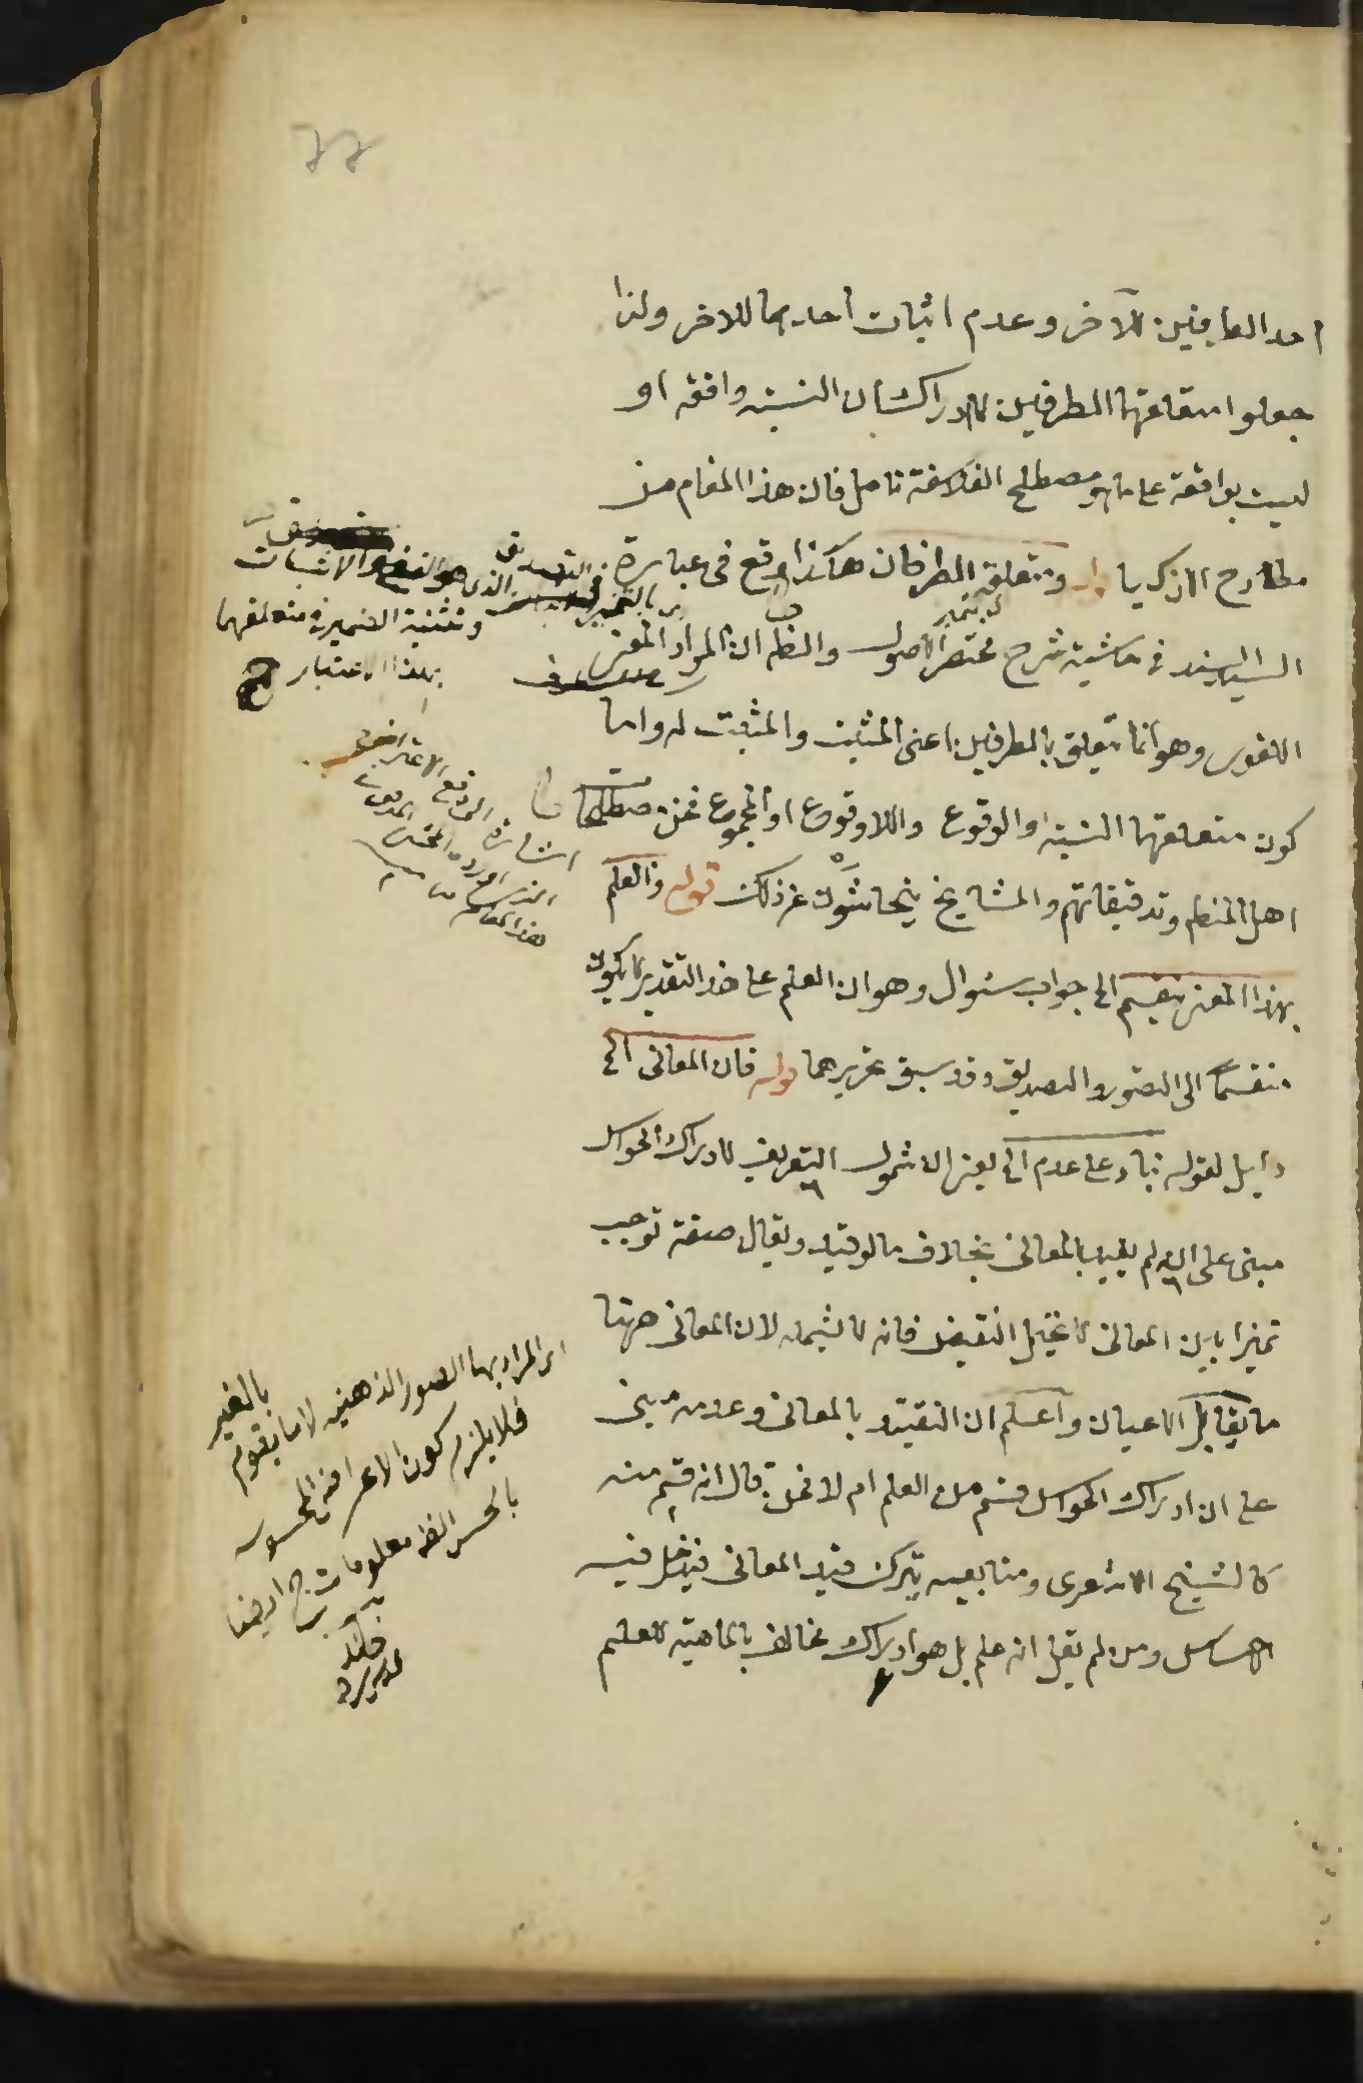 احد الطرفين للآخر وعدم اثبات احدهما للاخر ولذا
جعلوا متعلقهما الطرفين لا ادراك ان النسبة واقعة او
ليست بواقعة على ما هو مصطلح الفلاسفة تامل فان هذا المقام من
مطارح الاذكيا قوله ومتعلقه الطرفان هكذا وقع في عبارة
السيد السند في حاشية شرح مختصر الاصول والظ ان المراد المعنى
اللغوى وهو انما يتعلق بالطرفين اعنى المثبت والمثبت له واما
كون متعلقهما النسبة او الوقوع واللاوقوع او المجموع فمن مصطلحات
اهل المنطق وتدقيقاتهم والمشايخ يتحاشون عن ذلك قوله والعلم
بهذا المعنى ينقسم الخ جواب سئوال وهو ان العلم على هذا التقدير لا يكون
منقسماً الى التصور والتصديق وقد سبق تحريرهما قوله فان المعانى الخ
دليل لقوله بناء على عدم الخ يعنى ان شمول التعريف لادراك الحواس
مبنى على انه لم يقيد بالمعانى بخلاف ما لو قيد ويقال صفة توجب
تميزا بين المعانى لا يحتمل النقيض فانه لا يشمله لان المعانى جهتا
ما يقابل الاعيان واعلم ان التقييد بالمعانى وعدمه مبنى
على ان ادراك الحواس قسم من العلم ام لا فمن قال انه قسم منه
كالشيخ الاشعرى ومتابعيه يترك قيد المعانى فيدخل فيه
الاحساس ومن لم يقل انه علم بل هو ادراك مخالف بالماهية للعلم
الذى هو النفى والاثبات
وتثنية الضمير في متعلقهما
بهذا الاعتبار
اشارة الى دفع الاعتراض
الذى اورده المحشى
هذا المقام
اى المراد بها الصور الذهنيه لا ما يقوم بالغير
فلا يلزم كون الاعراض المحسوسه
بالحس الظ معلومات ح ايضا